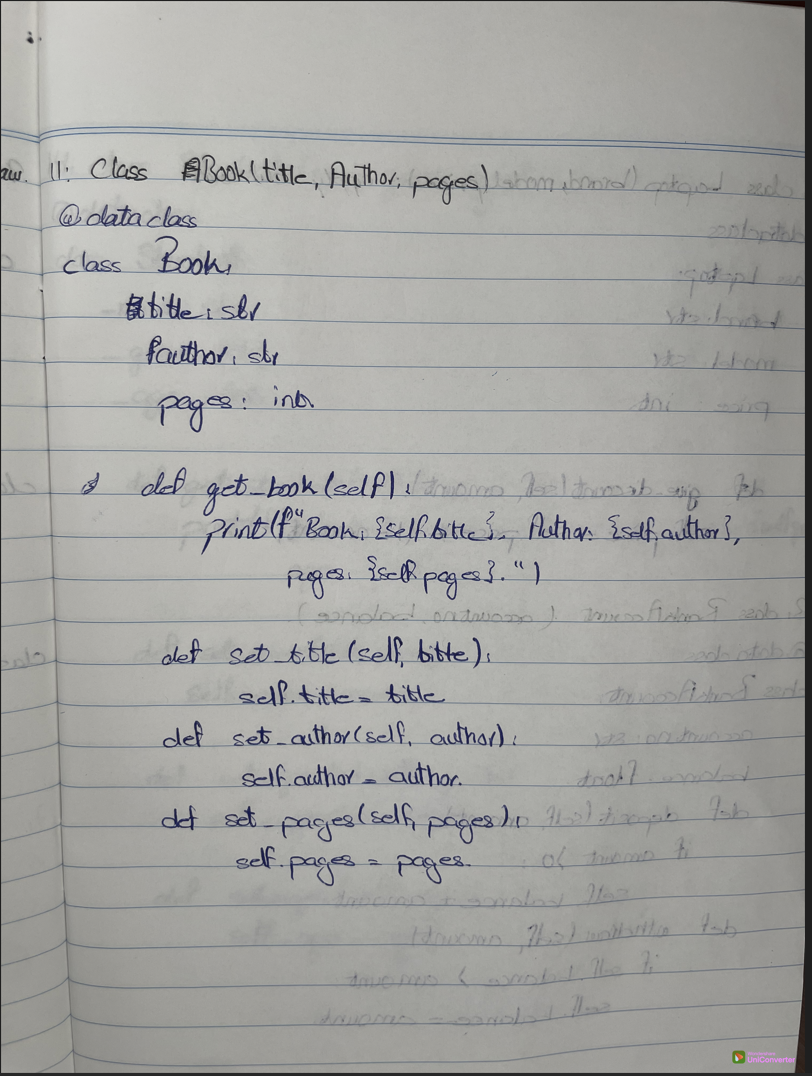 11: Class Book(title, Author, pages)
@dataclass
class Book:
title: str
author: str
pages: int
def get_book(self):
print(f"Book: {self.title}. Author: {self.author},
pages: {self.pages}.")
def set_title(self, title):
self.title = title
def set_author(self, author):
self.author = author.
def set_pages(self, pages):
self.pages = pages.
UniConverter